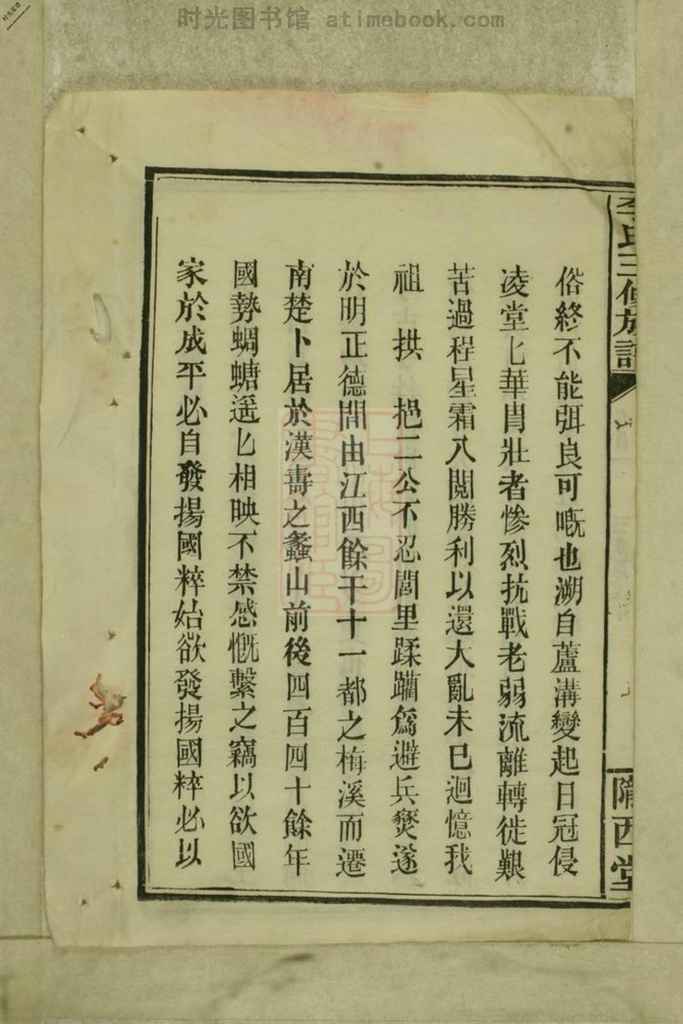 时光图书馆 atimebook.com
李氏三修族譜
隴西堂
俗終不能弭良可嘅也溯自蘆溝變起日冠侵
凌堂匕華胄壯者慘烈抗戰老弱流離轉徙艱
苦過程星霜八閱勝利以還大亂未已迴憶我
祖 拱 挹二公不忍閭里蹂躪爲避兵燹遂
於明正德間由江西餘干十一都之梅溪而遷
南楚卜居於漢壽之龕山前後四百四十餘年
國勢蜩螗遥匕相映不禁感慨繫之竊以欲國
家於成平必自發揚國粹始欲發揚國粹必以